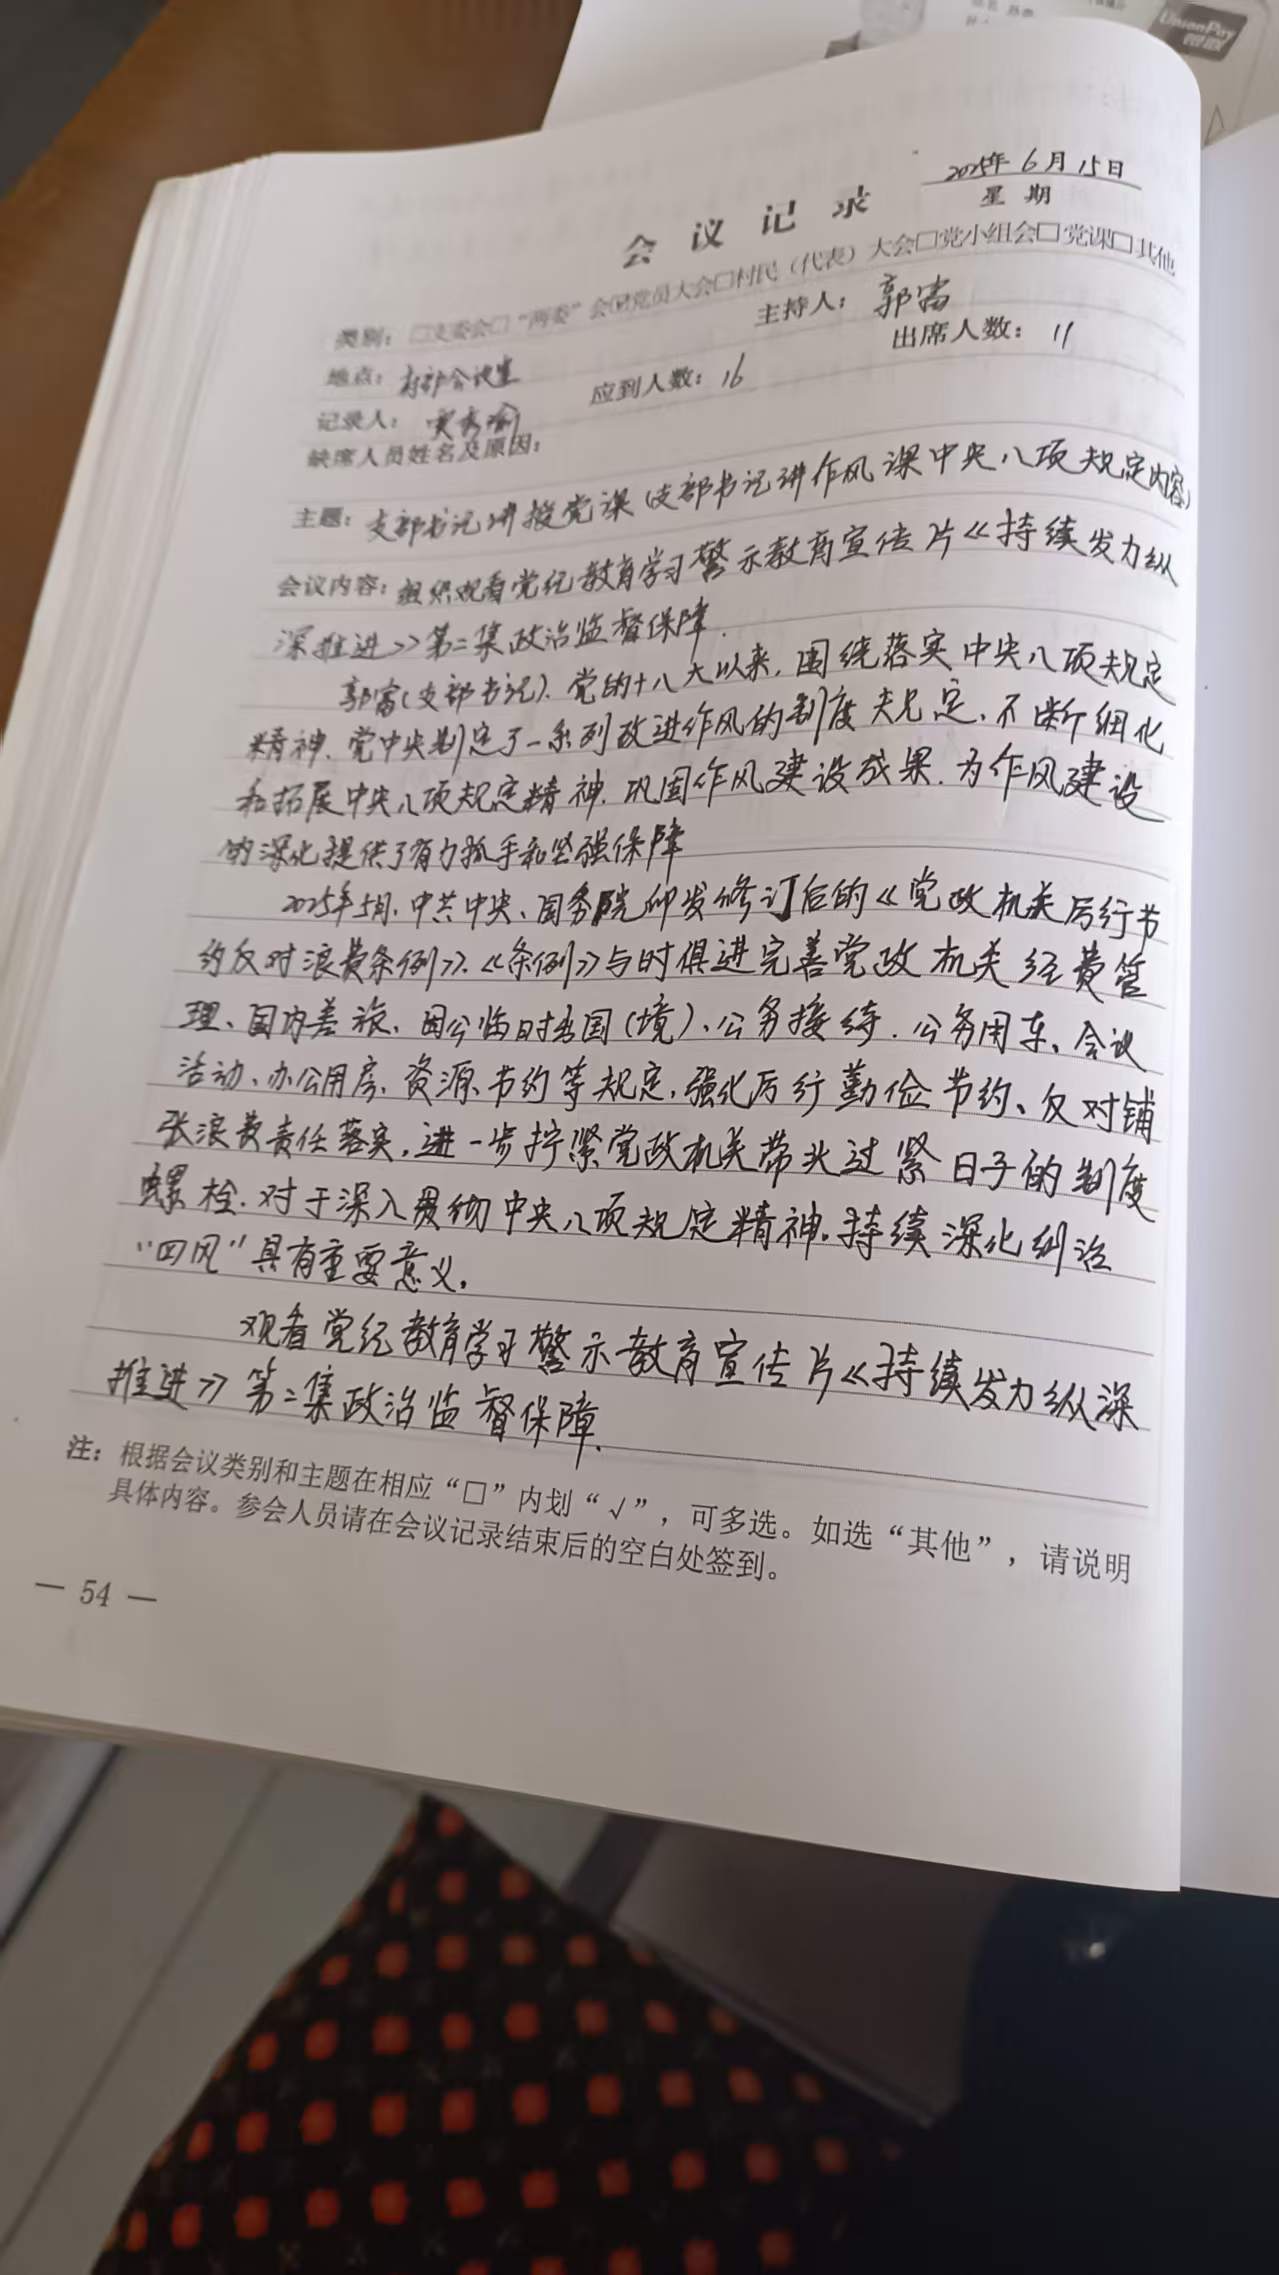 UnionPay
银联
2025年6月15日
星 期
会 议 记 录
类别：□支委会□“两委”会☑党员大会□村民（代表）大会□党小组会□党课□其他
地点：村部会议室
主持人：郭富
记录人：
应到人数：16
出席人数：11
缺席人员姓名及原因：
主题：支部书记讲授党课（支部书记讲作风课中央八项规定内容）
会议内容：组织观看党纪教育学习警示教育宣传片《持续发力纵
深推进》第二集政治监督保障.
郭富（支部书记）、党的十八大以来，围绕落实中央八项规定
精神、党中央制定了一系列改进作风的制度规定、不断细化
和拓展中央八项规定精神、巩固作风建设成果、为作风建设
的深化提供了有力抓手和坚强保障
2025年5月，中共中央、国务院印发修订后的《党政机关厉行节
约反对浪费条例》.《条例》与时俱进完善党政机关经费管
理、国内差旅、因公临时出国（境）、公务接待、公务用车、会议
活动、办公用房、资源节约等规定，强化厉行勤俭节约、反对铺
张浪费责任落实，进一步拧紧党政机关带头过紧日子的制度
螺栓.对于深入贯彻中央八项规定精神。持续深化纠治
“四风”具有重要意义。
观看党纪教育学习警示教育宣传片《持续发力纵深
推进》第二集政治监督保障.
注：根据会议类别和主题在相应“□”内划“√”，可多选。如选“其他”，请说明
具体内容。参会人员请在会议记录结束后的空白处签到。
— 54 —